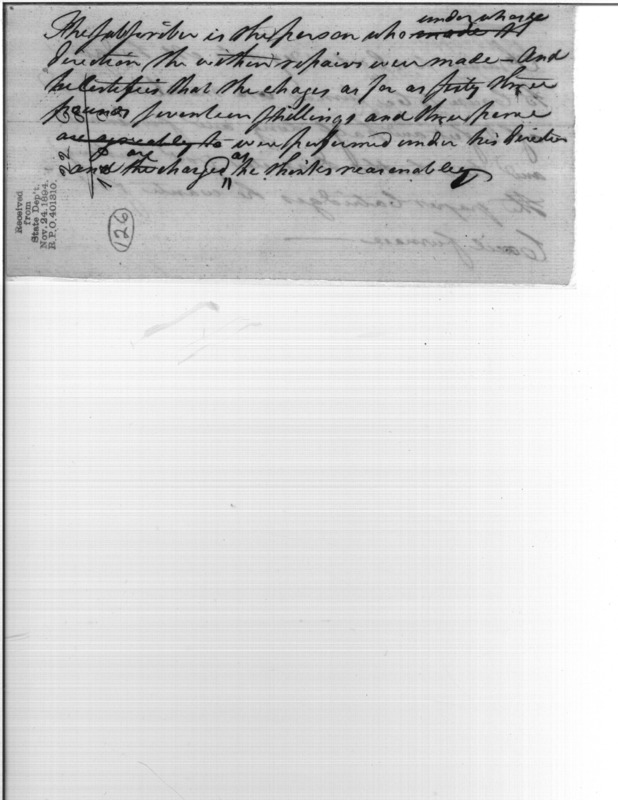 under whose
The subscriber is the person who made th
direction the within repairs were made – And
he Certifies that the chages as far as fifty three
pounds seventeen shillings and three pence
are agreeably to were performed under his direction
and the charged as he thinks reasonable
are
Received
from
State Dep't.
Nov. 24, 1894.
R.P.O. 401310.
126